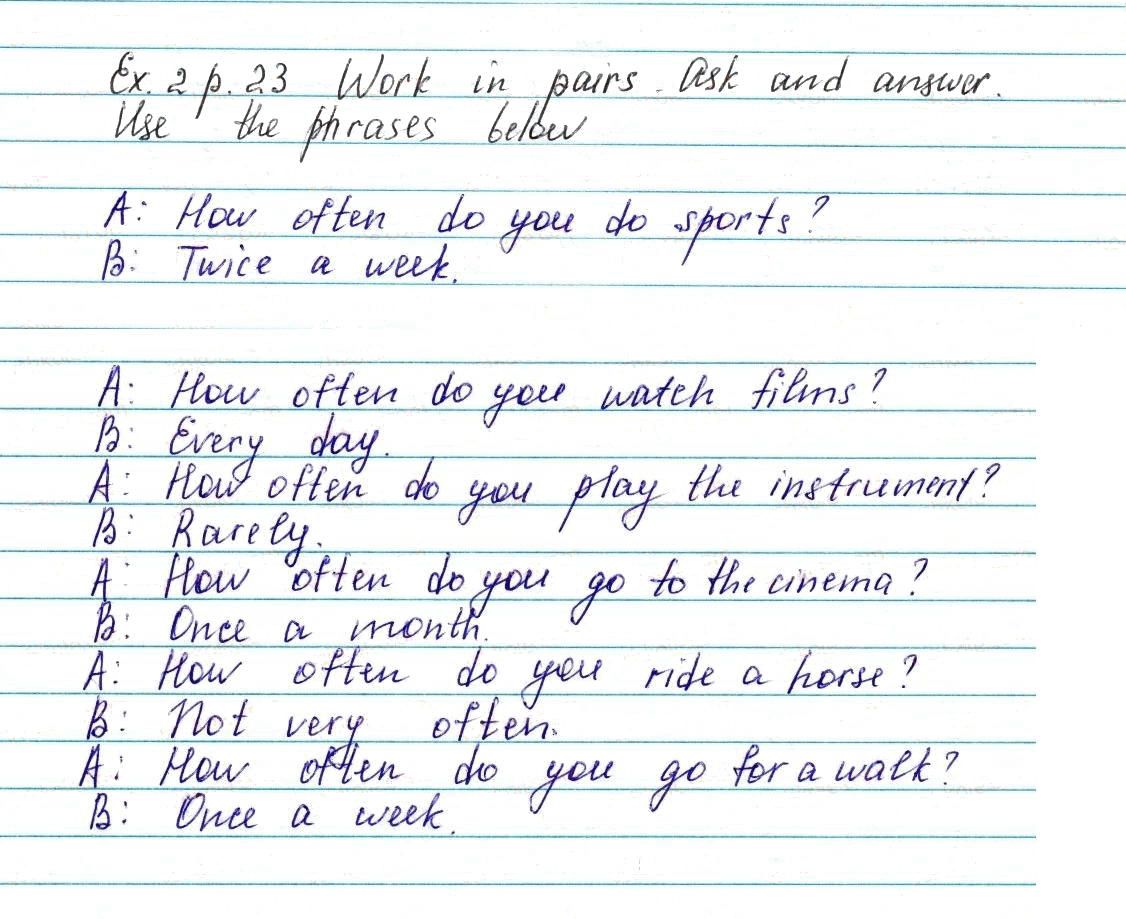 Ex. 2 p. 23 Work in pairs. Ask and answer.
Use the phrases below
A: How often do you do sports?
B: Twice a week.
A: How often do you watch films?
B: Every day.
A: How often do you play the instrument?
B: Rarely.
A: How often do you go to the cinema?
B: Once a month.
A: How often do you ride a horse?
B: Not very often.
A: How often do you go for a walk?
B: Once a week.